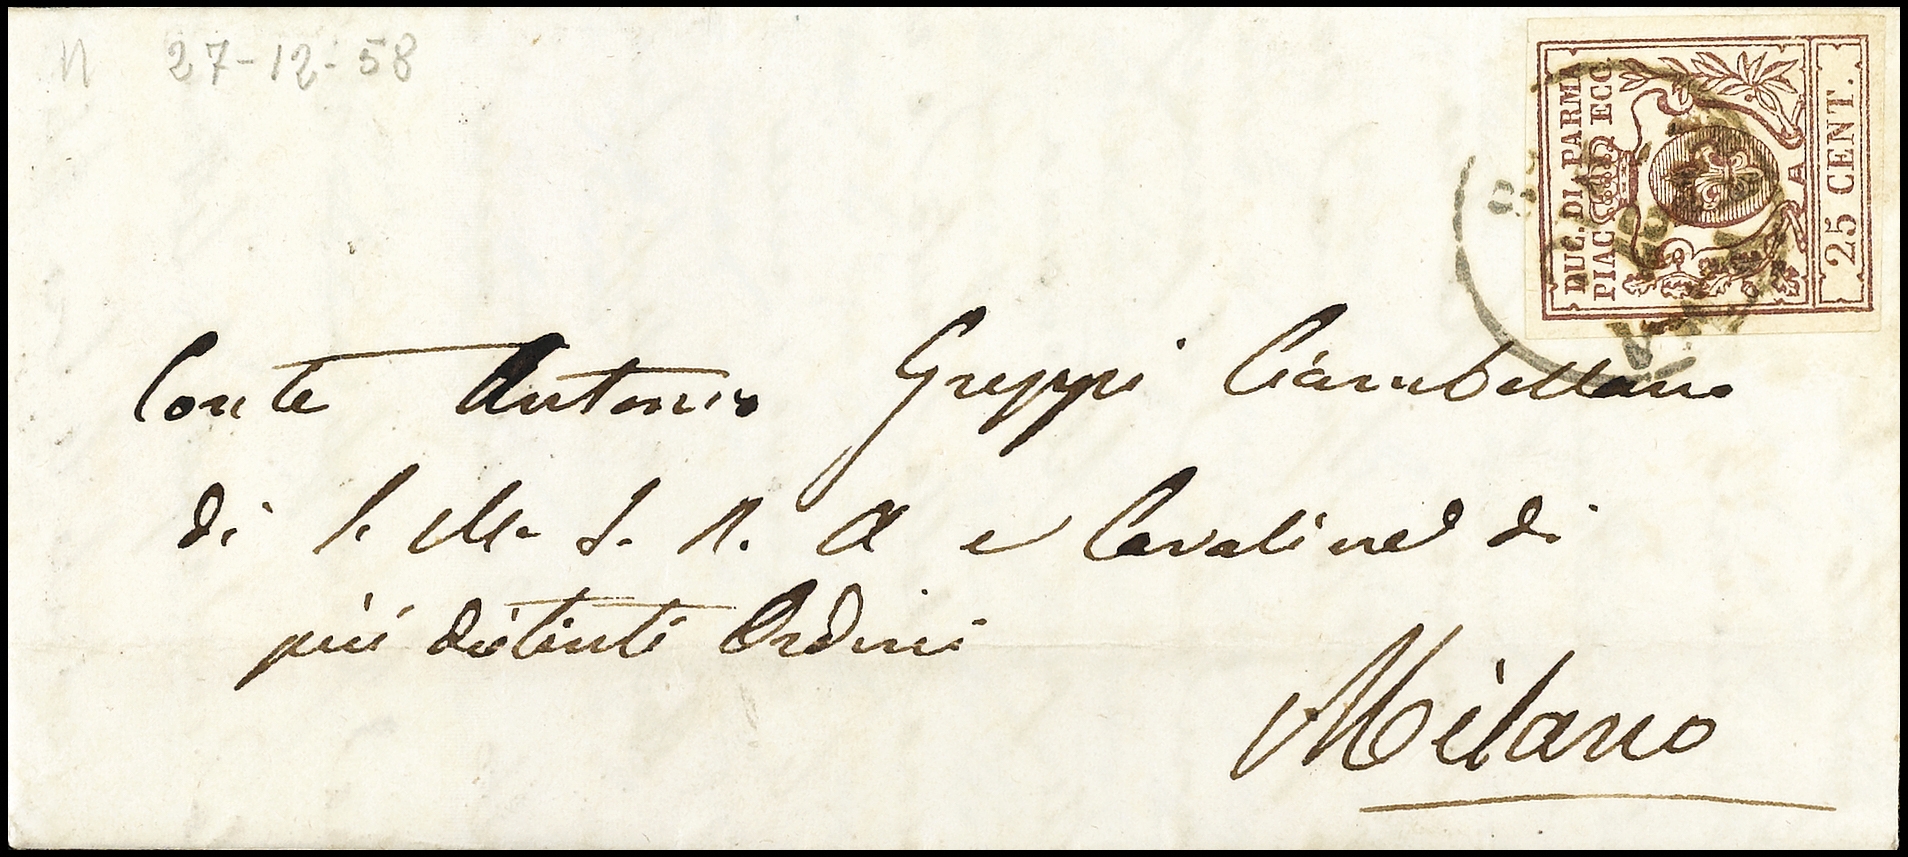 27-12-58
DUC. DI PARMA
PIAC. ECC.
25 CENT.
Conte Antonio Greppi Ciambellano
di S. M. I. R. A e Cavaliere di
più distinti Ordini
Milano